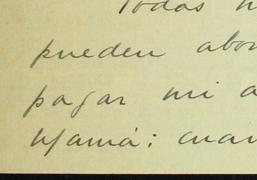 Todas
pueden abon
pagar mi a
Mamá: cuan